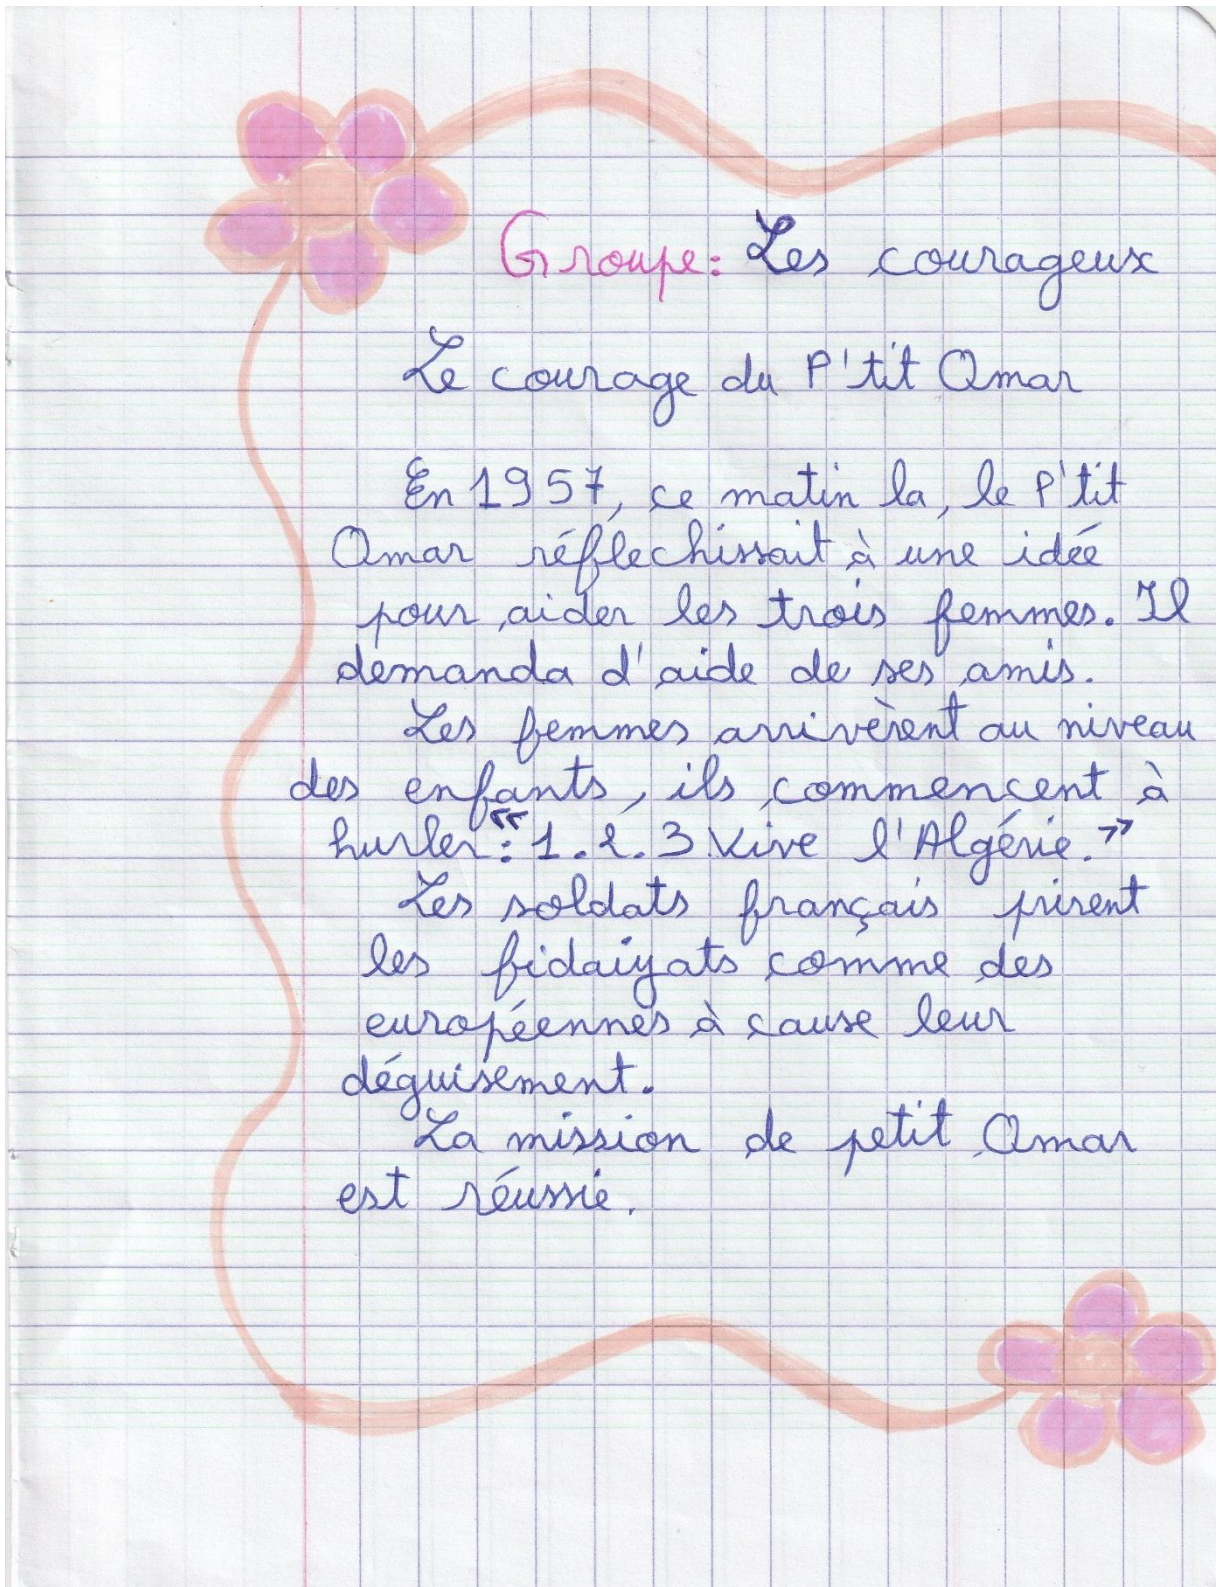 Groupe: Les courageux
Le courage du P'tit Omar
En 1957, ce matin la, le P'tit
Omar réflechissait à une idée
pour aider les trois femmes. Il
demanda d'aide de ses amis.
Les femmes arrivèrent au niveau
des enfants, ils commencent à
hurler: «1.2.3 Vive l'Algérie.»
Les soldats français prirent
les fidaiyats comme des
européennes à cause leur
déguisement.
La mission de petit Omar
est réussie.